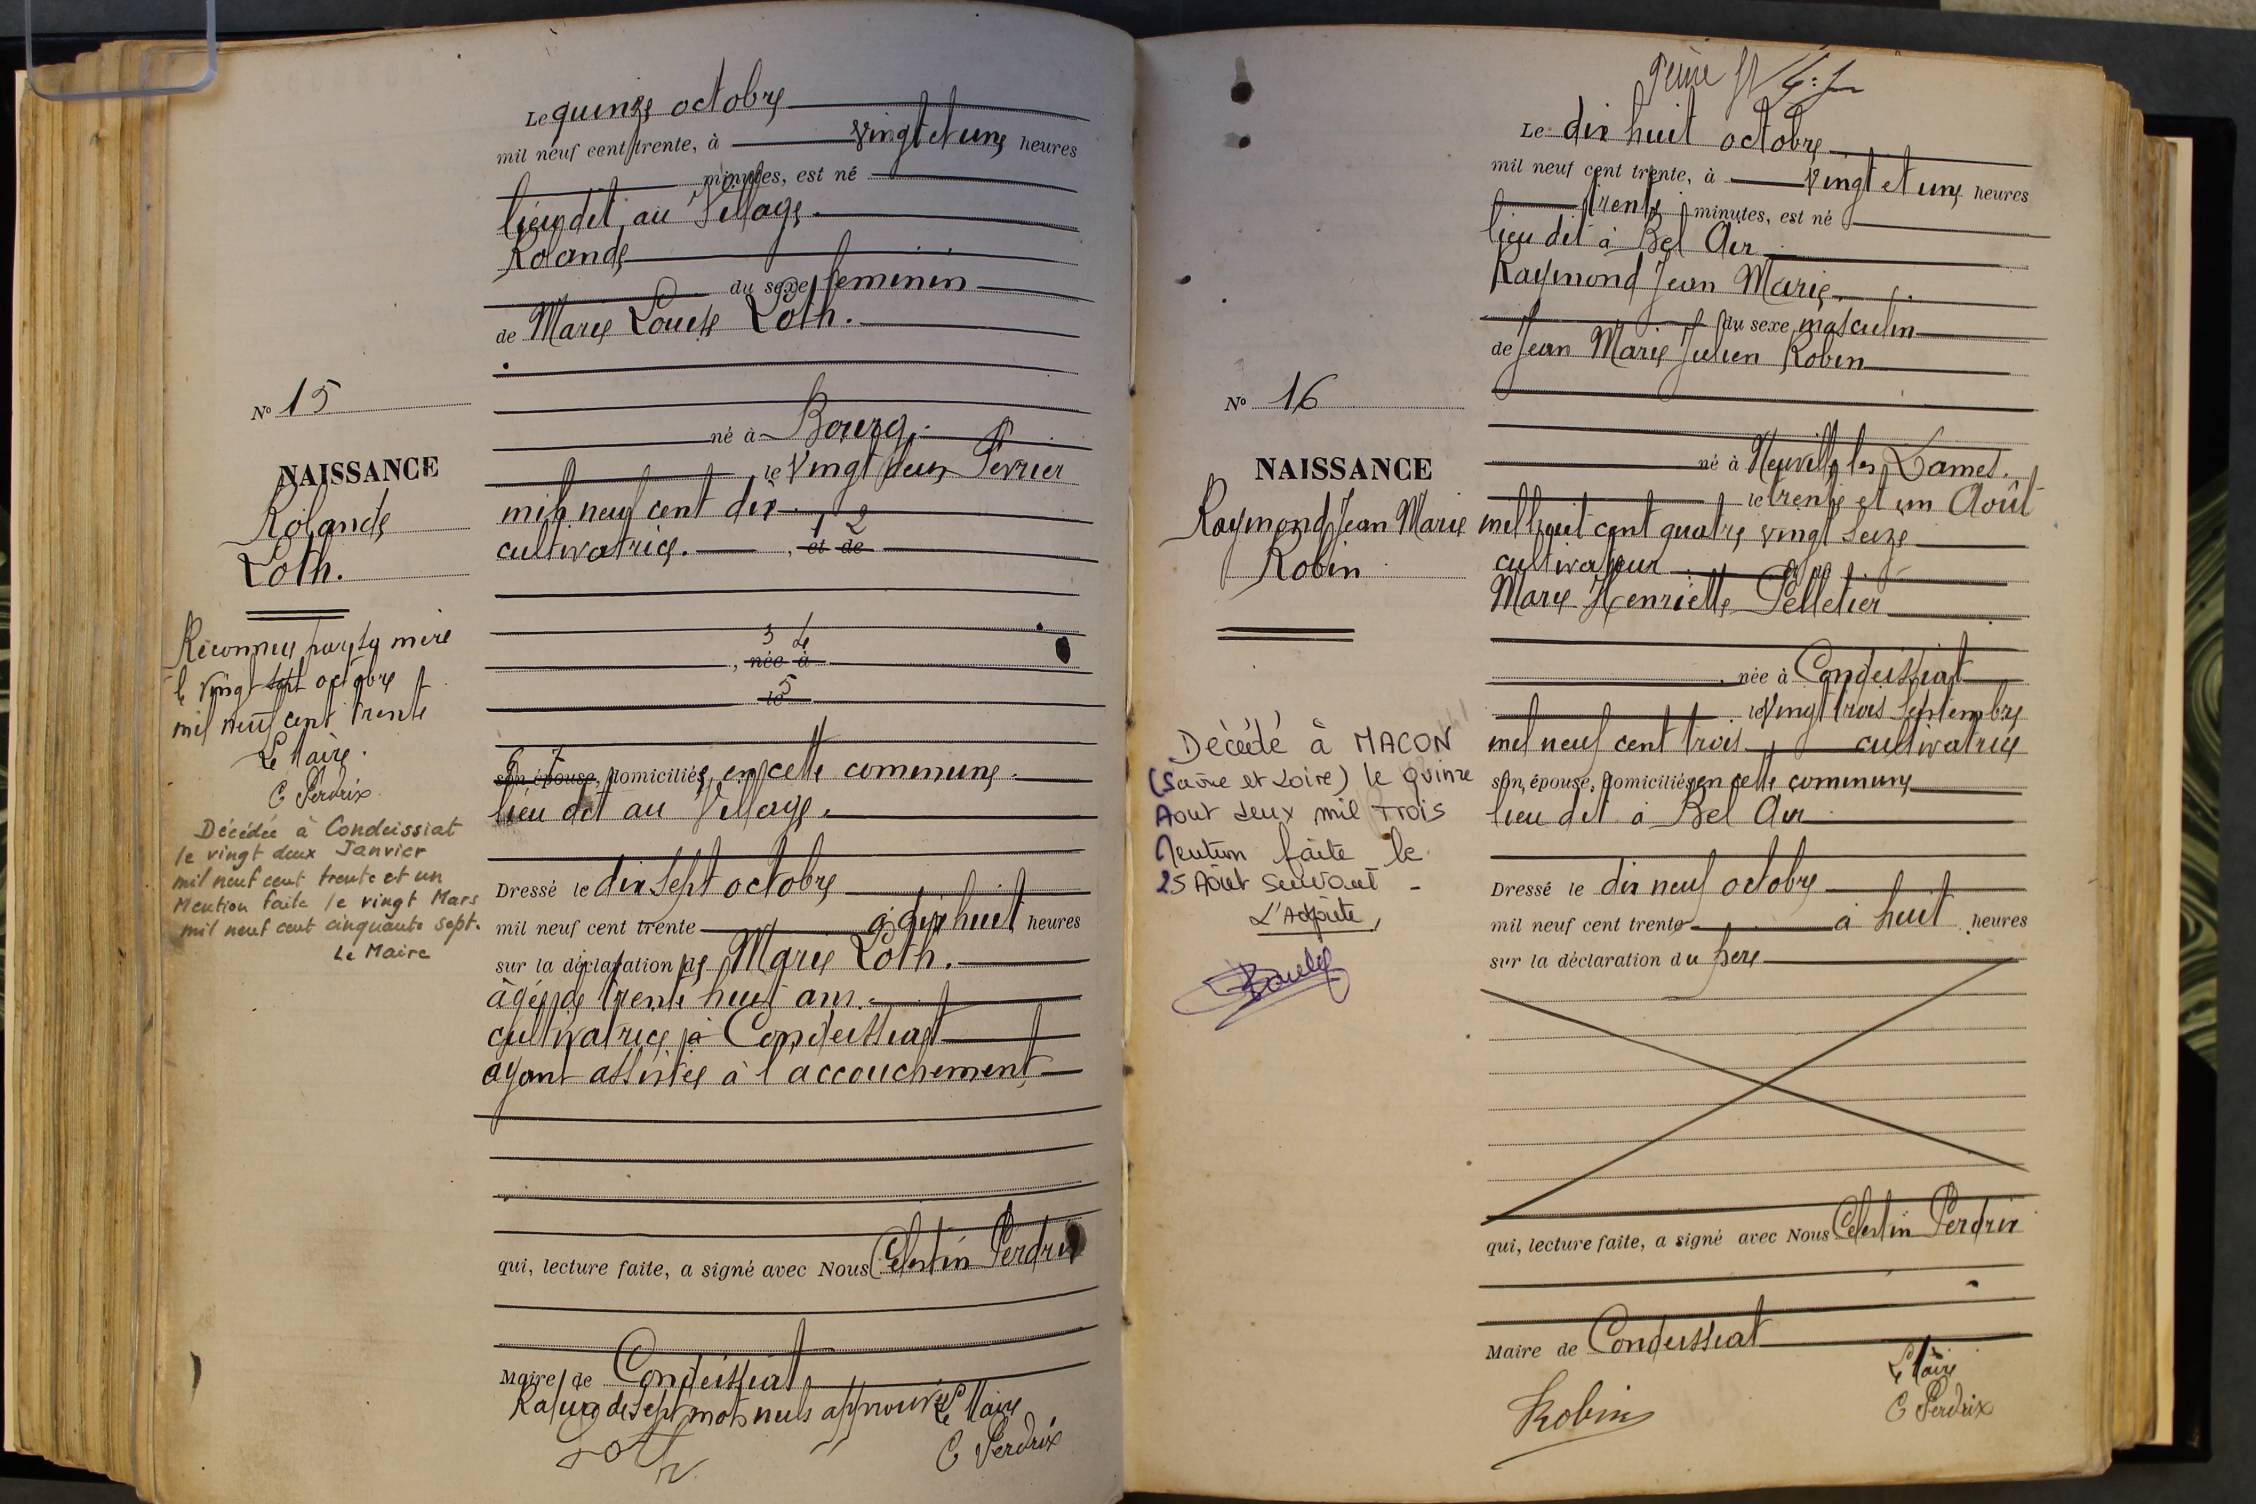 Le quinze octobre
mil neuf cent trente, à vingt et une heures
minutes, est né
lieu dit au Village.
Rolande
du sexe feminin
de Marie Louise Loth.
né à Bourg.
le vingt deux Fevrier
mil neuf cent dix
cultivatrice. , et de 1 2
3 4
, née à
5
le
6 7
son épouse, domiciliée en cette commune.
lieu dit au Village.
Dressé le dix sept octobre
mil neuf cent trente à dix huit heures
sur la déclaration de Marie Loth.
âgée de trente huit ans.
cultivatrice à Condeissiat
ayant assistée à l'accouchement
qui, lecture faite, a signé avec Nous Celestin Perdrix
Maire de Condeissiat
Rature de sept mots nuls approuvée Le Maire
Loth
C Perdrix
N° 15
NAISSANCE
Rolande
Loth.
Reconnue par sa mère
le vingt sept octobre
mil neuf cent trente
Le Maire.
C Perdrix
Décédée à Condeissiat
le vingt deux Janvier
mil neuf cent trente et un
Mention faite le vingt Mars
mil neuf cent cinquante sept.
Le Maire
Le dix huit octobre
mil neuf cent trente, à vingt et une heures
trente minutes, est né
lieu dit à Bel Air
Raymond Jean Marie
du sexe masculin
de Jean Marie Julien Robin
né à Neuville les Dames.
le trente et un Août
mil huit cent quatre vingt seize
cultivateur , et de
Marie Henriette Pelletier
, née à Condeissiat
le vingt trois Septembre
mil neuf cent trois , cultivatrice
son épouse, domiciliés en cette commune
lieu dit à Bel Air
Dressé le dix neuf octobre
mil neuf cent trente à huit heures
sur la déclaration du pere
qui, lecture faite, a signé avec Nous Celestin Perdrix
Maire de Condeissiat
Le Maire
Robin
C Perdrix
N° 16
NAISSANCE
Raymond Jean Marie
Robin
Décédé à MACON
(Saône et Loire) le quinze
Aout deux mil TROIS
Mention faite le
25 Aôut Suivant -
L'Adjointe,